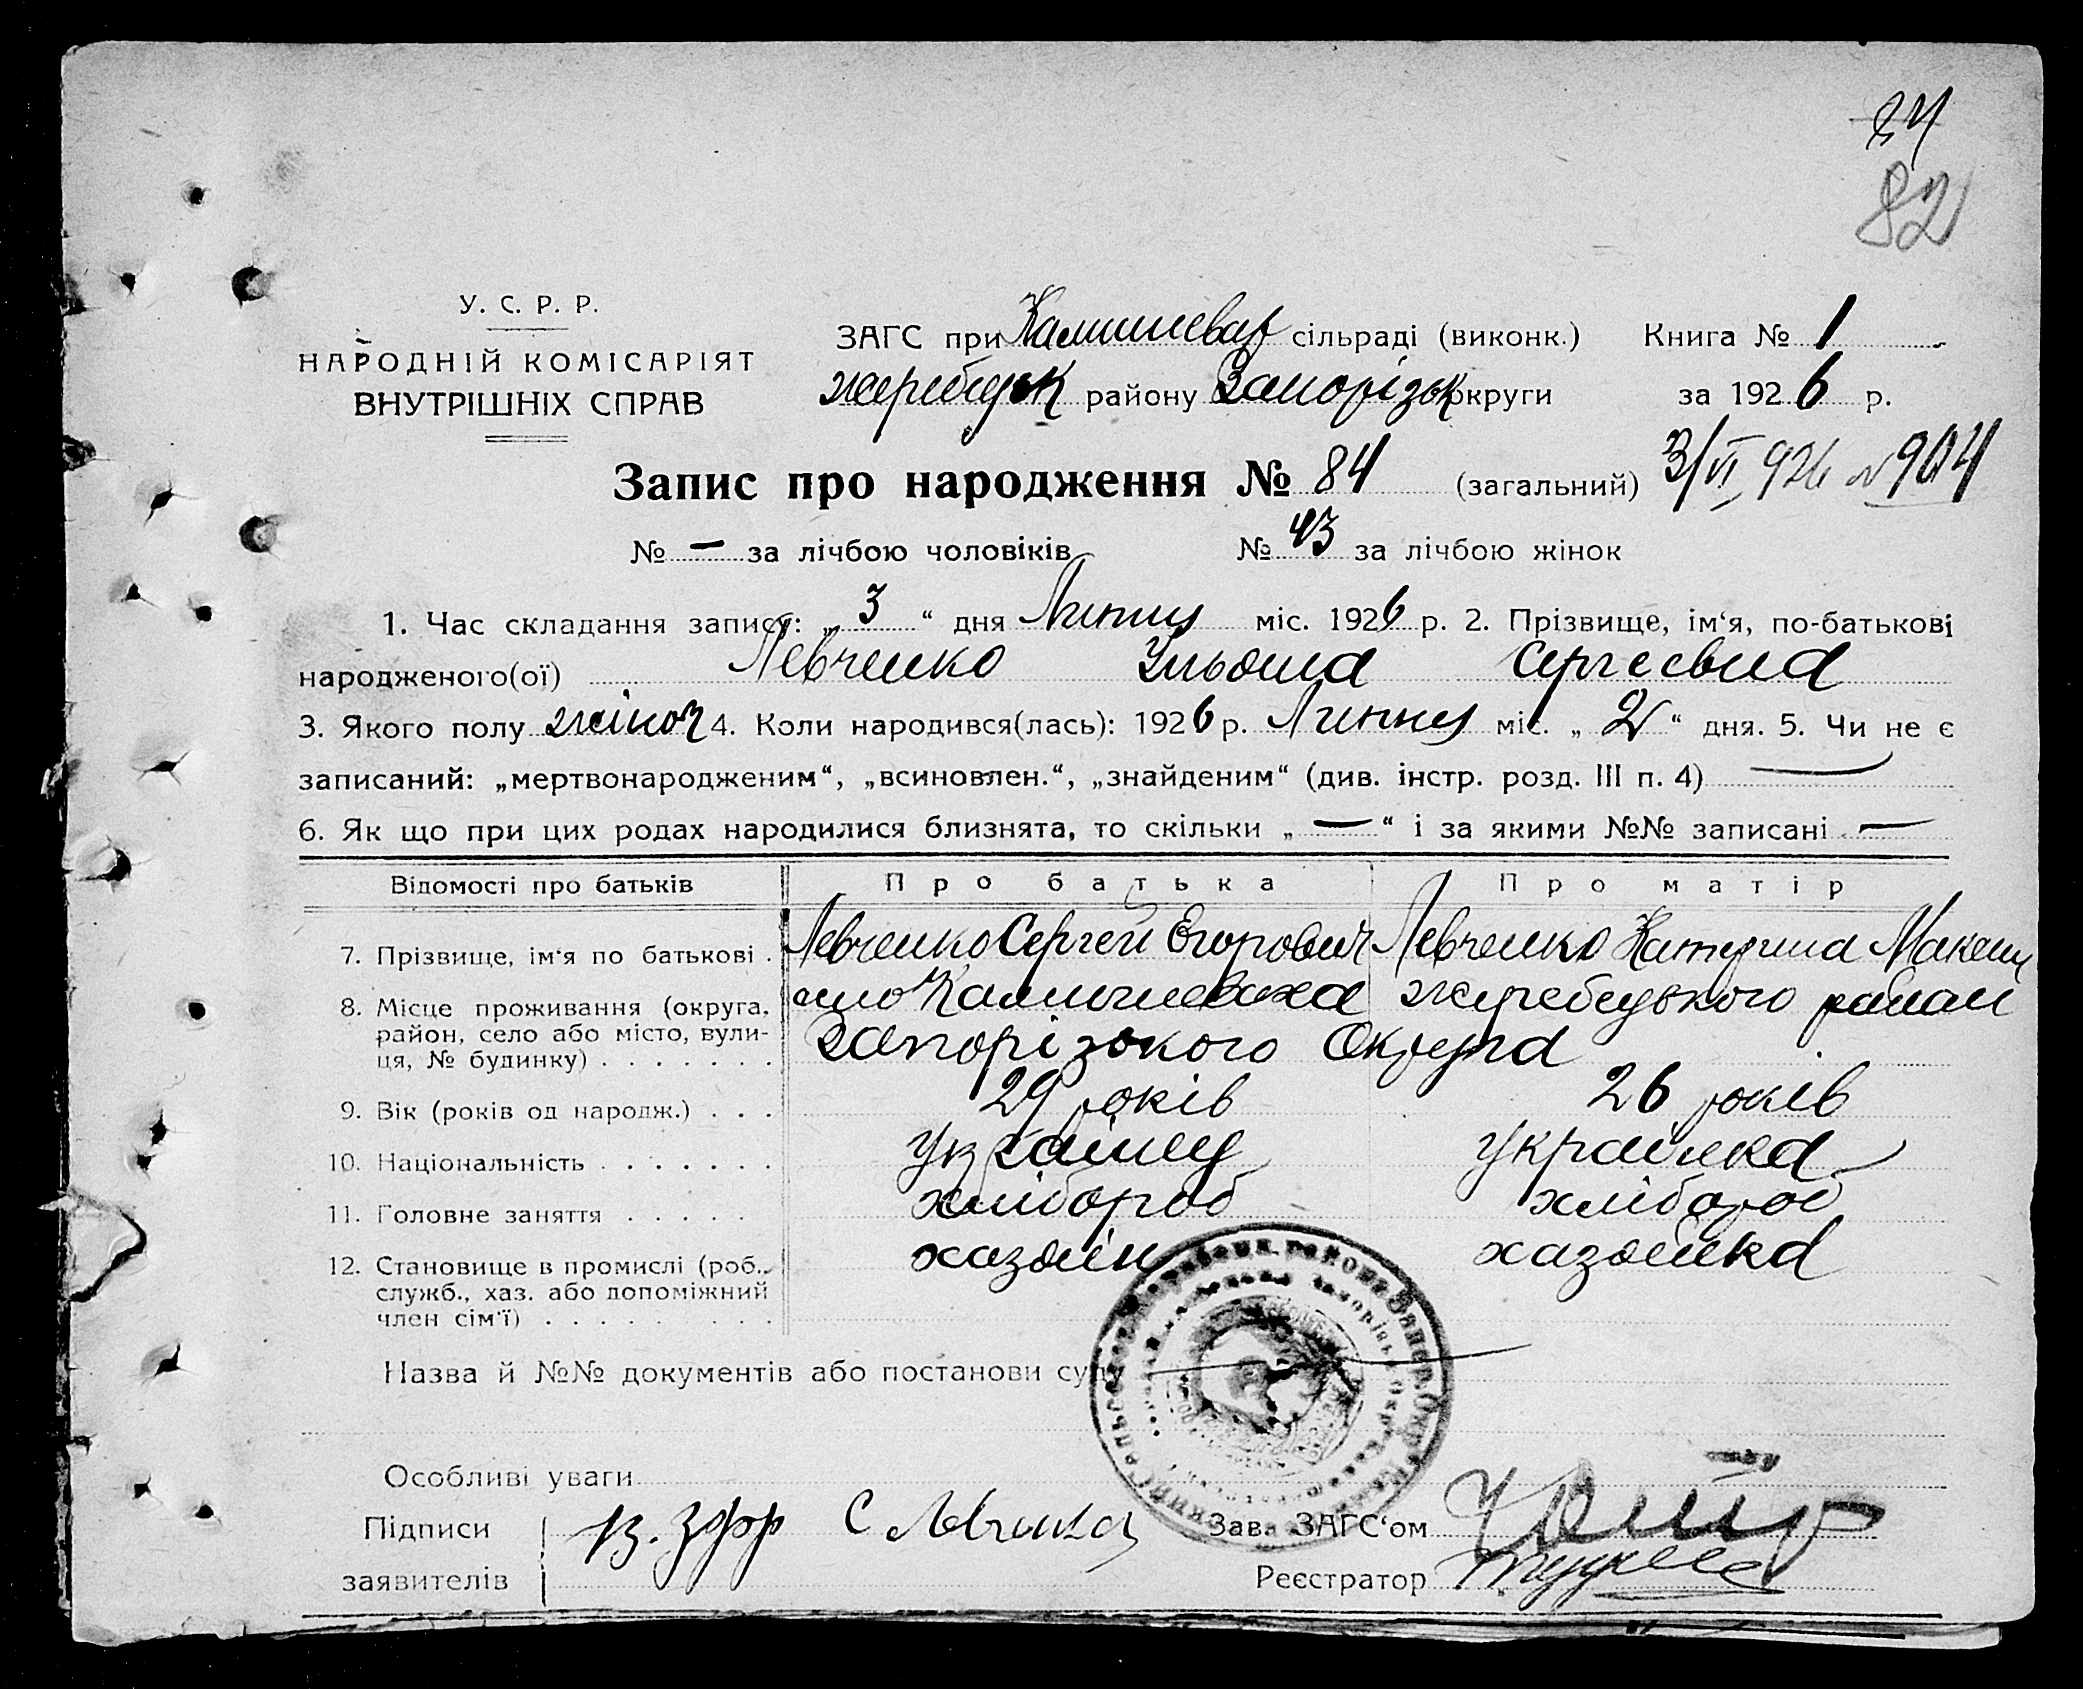 84
82
У. С. Р. Р.
НАРОДНІЙ КОМІСАРІЯТ
ВНУТРІШНІХ СПРАВ
ЗАГС при Камишеват сільраді (виконк.) Книга № 1
жеребецьк району Запорізьк округи за 1926 р.
Запис про народження № 84 (загальний) 3/VI 926 N 904
№ — за лічбою чоловіків № 43 за лічбою жінок
1. Час складання запису: „ 3 “ дня Липня міс. 1926 р. 2. Прізвище, ім‘я, по-батькові
народженого(ої) Левченко Ульяна Сергеевна
3. Якого полу жіноч 4. Коли народився(лась): 1926 р. Липня міс. „ 2 “ дня. 5. Чи не є
записаний: „мертвонародженим“, „всиновлен.“, „знайденим“ (див. інстр. розд. III п. 4) —
6. Як що при цих родах народилися близнята, то скільки „ — “ і за якими №№ записані —
Відомості про батьків Про батька Про матір
7. Прізвище, ім‘я по батькові . Левченко Сергей Егорович Левченко Катерина Максим
8. Місце проживання (округа, Камишеваха жеребецького
район, село або місто, вули- Запорізького Округа
ця, № будинку) . . . . . . .
9. Вік (років од народж.) . . . 29 років 26 років
10. Національність . . . . . . . українец українка
11. Головне заняття . . . . . хлібороб хлібороб
12. Становище в промислі (роб., хазяїн хазяйка
служб., хаз. або допоміжний
член сім‘ї) . . . . . . . . .
Назва й №№ документів або постанови суду —
Особливі уваги
Підписи С Левченко Зав. ЗАГС‘ом
заявителів Реєстратор